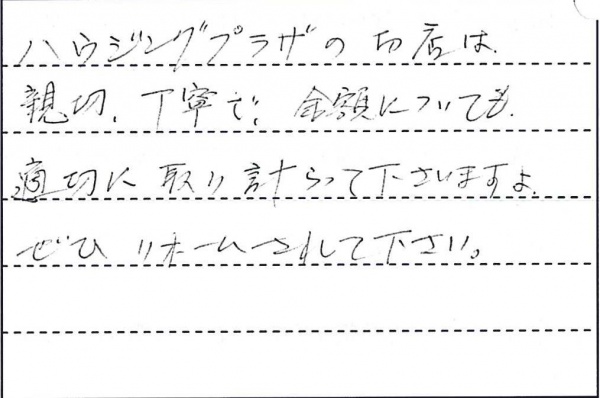 ハウジングプラザの お店は
親切、丁寧で、金額についても
適切に 取り計らって下さいますよ。
ぜひ リホームされして下さい。